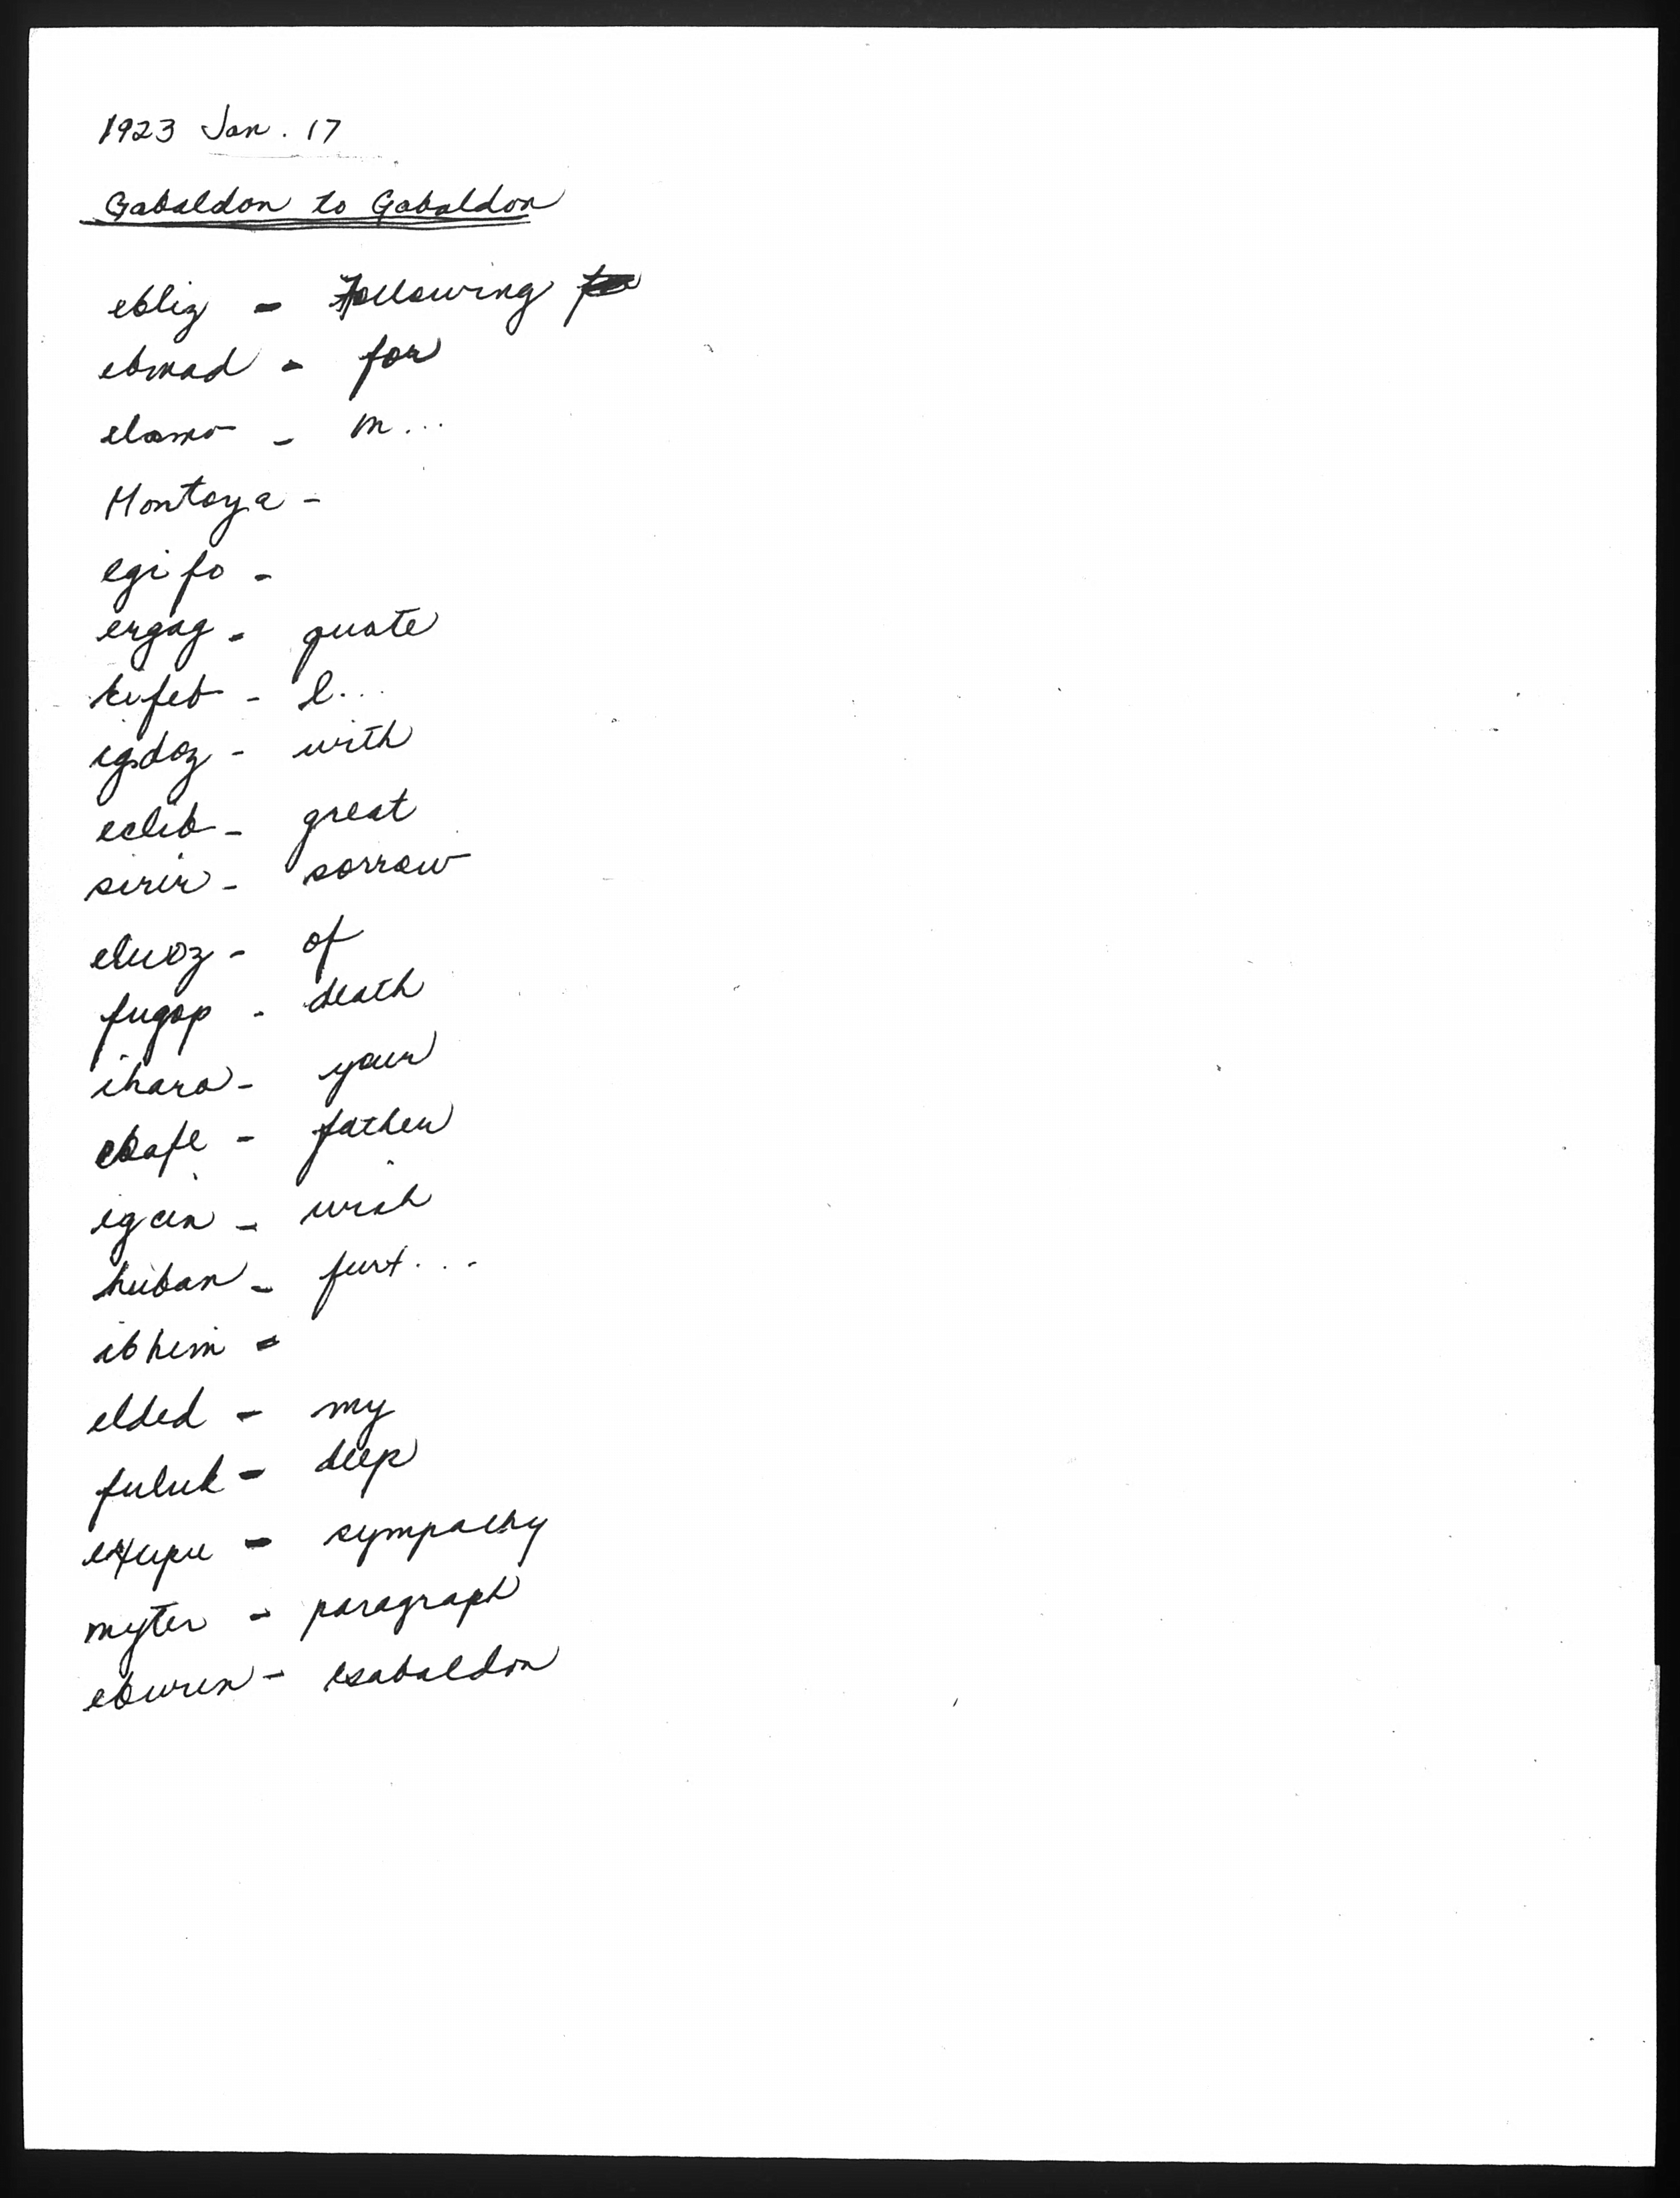 1923 Jan. 17
Gabaldon to Gabaldon
ebliz - Following
ebmad - for
elamo - m...
Montoya -
egifo -
ergag - quote
kifeb - l...
igdoz - with
eclib - great
sirir - sorrow
eluoz - of
fugop - death
ihara - your
ebafe - father
igcin - wish
huban - furt...
ibhem -
elded - my
fuluk - deep
exupu - sympathy
myter - paragraph
ebwun - Gabaldon